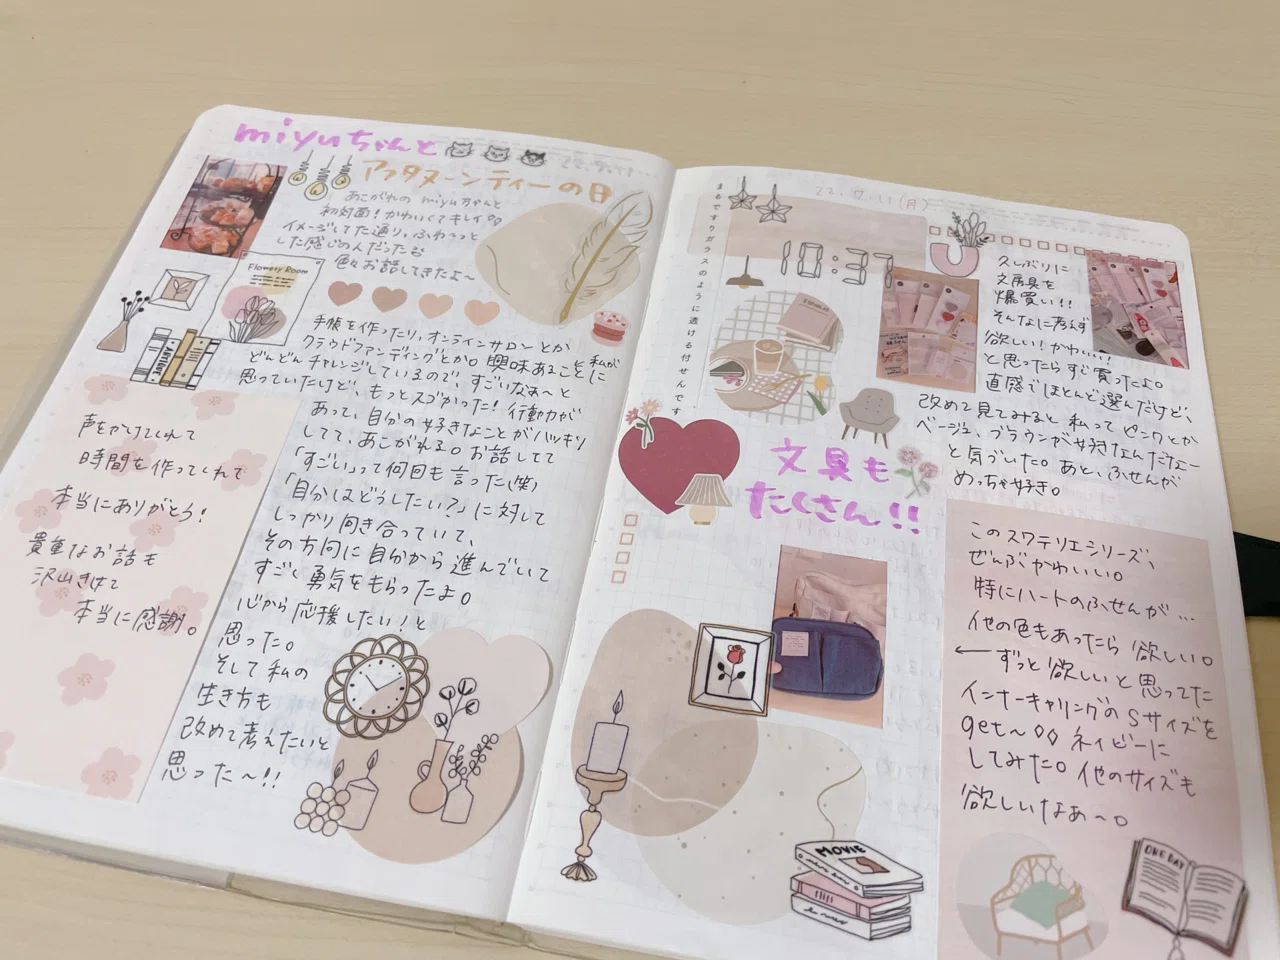 miyuちゃんと
アフタヌーンティーの日
あこがれの miyuちゃんと
初対面！かわいくてキレイ
イメージしてた通り、ふわ〜っと
した感じの人だったよ
色々お話してきたよ〜
Flowery Room
手帳を作ったり、オンラインサロンとか
クラウドファンディングとか。興味あることに私が
どんどんチャレンジしているので、すごいなぁ〜と
思っていたけど、もっとスゴかった！行動力が
あって、自分の好きなことがハッキリ
してて、あこがれる。お話してて
「すごい」って何回も言った(笑)
「自分はどうしたい？」に対して
しっかり向き合っていて、
その方向に自分から進んでいて
すごく勇気をもらったよ。
心から応援したい！と
思った。
そして私の
生き方も
改めて考えたいと
思った〜!!
ANTIQUE
声をかけてくれて
時間を作ってくれて
本当にありがとう！
貴重なお話も
沢山きけて
本当に感謝。
22.7.11(月)
まるですりガラスのように透ける付せんです
10:37
久しぶりに
文房具を
爆買い!!
そんなに考えず
欲しい！かわいい！
と思ったらすぐ買ったよ。
直感でほとんど選んだけど、
改めて見てみると私ってピンクとか
ベージュ、ブラウンが好きなんだなー
と気づいた。あと、ふせんが
めっちゃ好き。
文具も
たくさん!!
このスワテリエシリーズ、
ぜんぶかわいい。
特にハートのふせんが…
他の色もあったら欲しい。
←ずっと欲しいと思ってた
インナーキャリングのSサイズを
get〜 ネイビーに
してみた。他のサイズも
欲しいなぁ〜。
MOVIE
ONE DAY